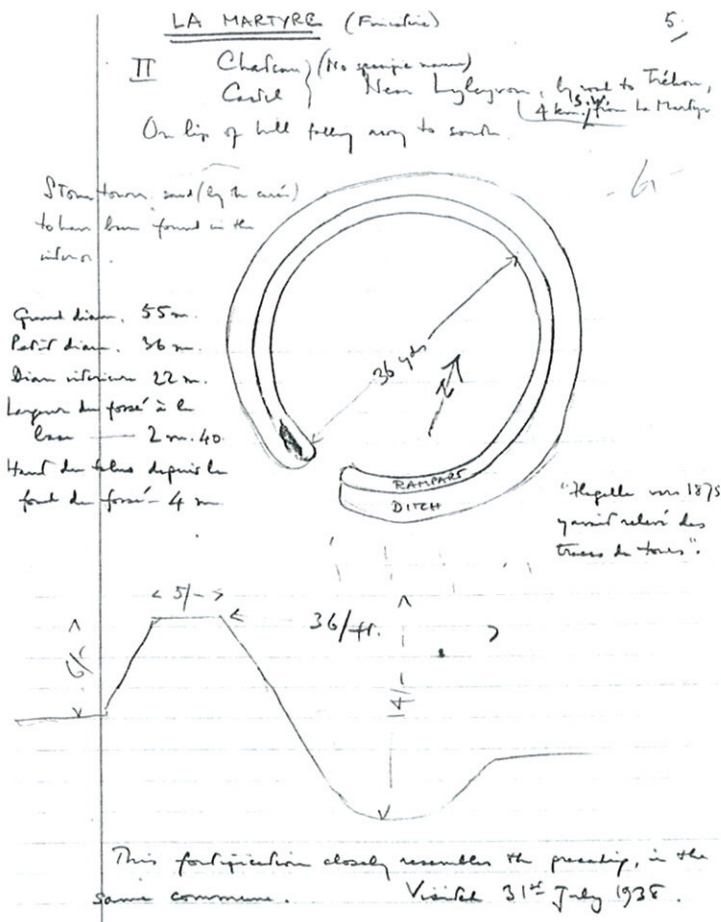 LA MARTYRE (Finistère) 5.
II Chateau } (No specific name)
Castel } Near , by road to Tréhou,
4 km. S.W. from La Martyre
On lip of hill falling away to south.
Stone towers said (by the curé)
to have been found in the
interior.
Grand diam. 55 m.
Petit diam. 36 m.
Diam intérieur 22 m.
Largeur du fossé à la
base — 2 m. 40.
Haut du talus depuis le
fond du fossé - 4 m
36 yds
N
RAMPART
DITCH
"Flagelle vers 1875
y avait relevé des
traces de tours".
5/-
36/ft. ?
6/-
This fortification closely resembles the preceding, in the
same commune. Visited 31st July 1938.